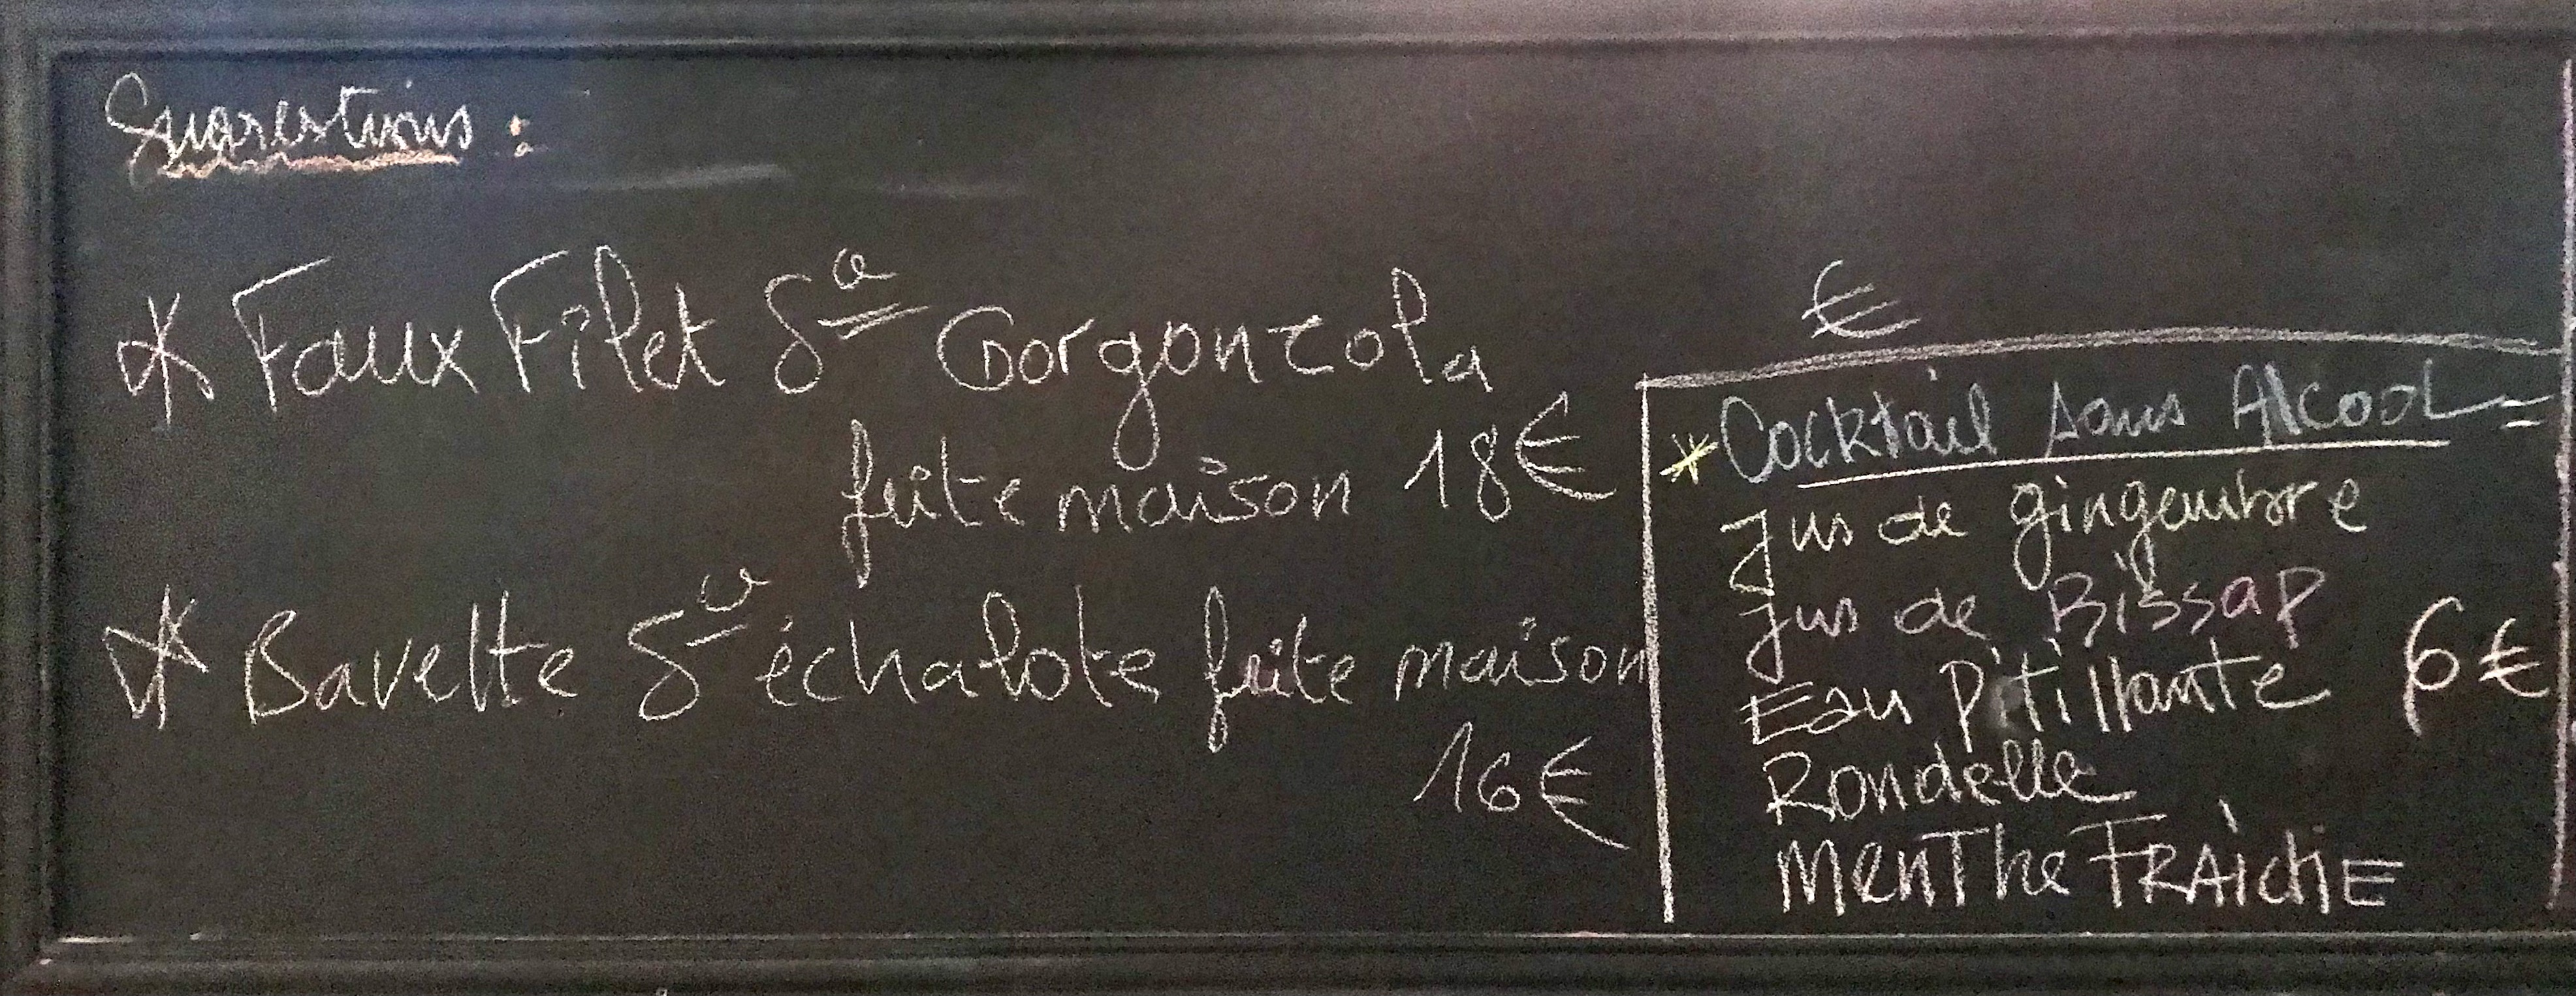 Suggestions :
* Faux Filet Sce Gorgonzola
faite maison 18€
* Bavette Sce échalote faite maison
16€
€
* Cocktail sans Alcool =
Jus de gingembre
Jus de Bissap
Eau Pétillante 6€
Rondelle
Menthe FRAîCHE